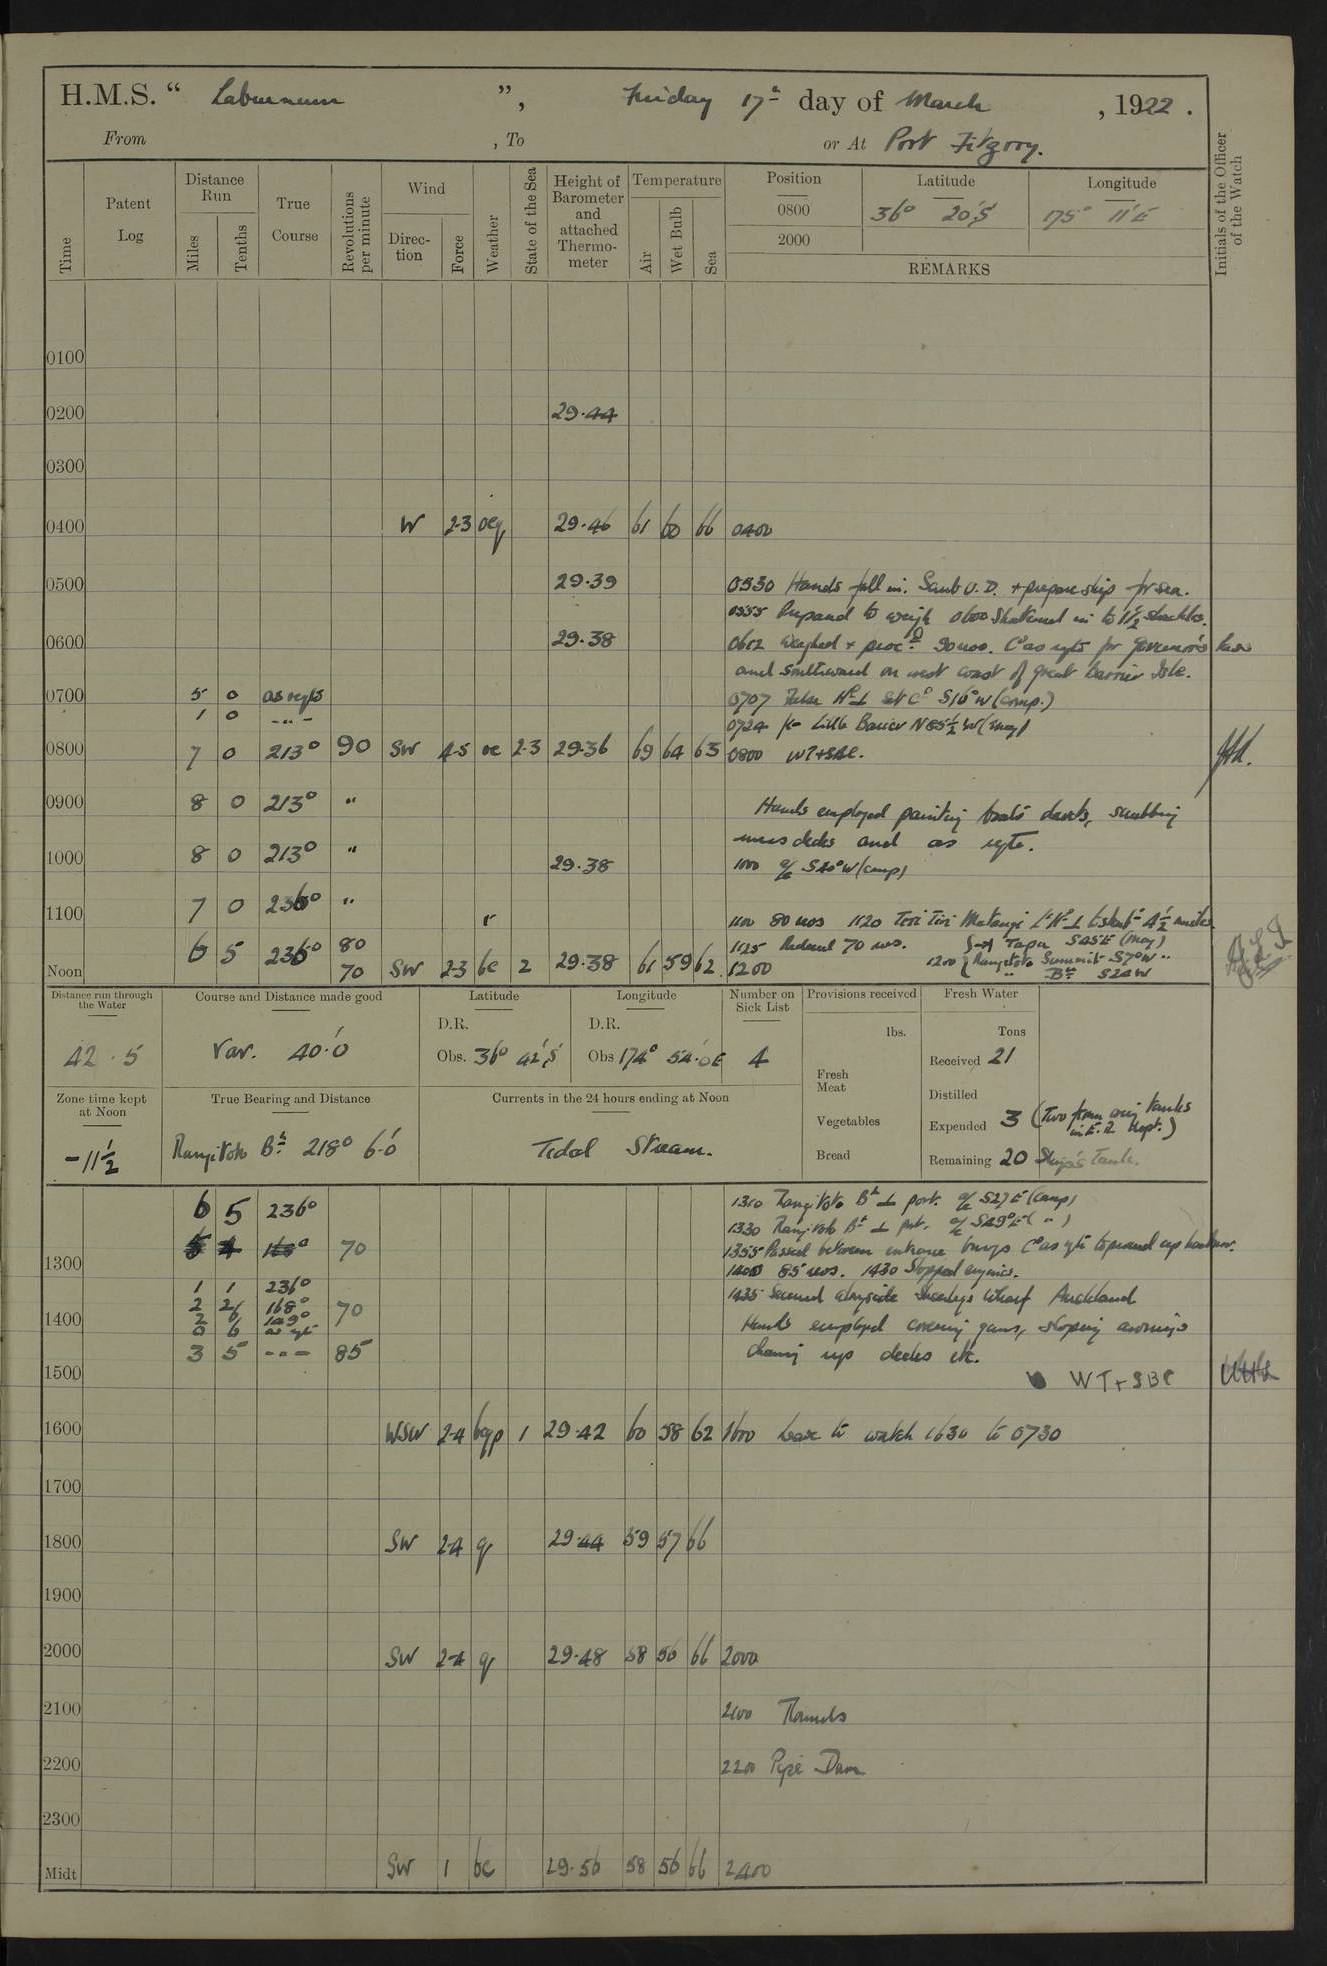 H.M.S. " Laburnum ", Friday 17th day of March, 1922.
From , To or At Port Fitzroy.
Time
Patent Log
Distance Run
Miles
Tenths
True Course
Revolutions per minute
Wind
Direction
Force
Weather
State of the Sea
Height of Barometer and attached Thermometer
Temperature
Air
Wet Bulb
Sea
Position
Latitude
Longitude
0800 36° 20'S 175° 11'E
2000
REMARKS
Initials of the Officer of the Watch
0100
0200 29.44
0300
0400 W 2-3 29.46 61 60 66 0400
0500 29.39 0530 Hands fall in. Scrub U.D. + prepare ship for sea.
0555 Prepared to weigh 0600 Shortened in to 1½ shackles.
0600 29.38 0612 Weighed + proc'd 90 revs. Co as reqte for Governor's Pass
and Southward on west coast of Great Barrier Isle.
0700 5 0 as reqte 0707 S16°W (comp.)
1 0 - " - 0724 Little Barrier N85½W (mag)
0800 7 0 213° 90 SW 4-5 oc 2-3 29.36 69 64 63 0800 WT+SBC.
0900 8 0 213° " Hands employed painting boats davits, scrubbing
mess decks and as reqte.
1000 8 0 213° " 29.38 1000 a/c S40°W (comp)
1100 7 0 236° " 1100 80 revs 1120 Tiri Tiri Matangi 4½ miles
6 5 236° 80 1125 Reduced 70 revs.
Noon 70 SW 2-3 bc 2 29.38 61 59 62 1200 1200 Rangitoto Summit S7°W "
" Bn S24W
Distance run through the Water
42.5
Course and Distance made good
Var. 40.0
Latitude
D.R.
Obs. 36° 42'S
Longitude
D.R.
Obs 174° 54.0E
Number on Sick List
4
Provisions received
lbs.
Fresh Meat
Vegetables
Bread
Fresh Water
Tons
Received 21
Distilled
Expended 3 (Two from
Remaining 20 Ship's Tank.
Zone time kept at Noon
-11½
True Bearing and Distance
Rangitoto Bn 218° 6.0
Currents in the 24 hours ending at Noon
Tidal Stream.
6 5 236° 1310 Rangitoto Bn ⊥ port. a/c S27E (comp)
1330 Rangitoto Bn ⊥ port. a/c S49°E ( " )
1300 70 1355 Passed between entrance buoys Co as reqte to proceed up harbour.
1400 85 revs. 1430 Stopped engines.
1 1 236° 1435 Secured alongside Wharf Auckland
1400 2 168° 70 Hands employed covering guns, sloping awnings
2 149°
0 6 as reqte
3 5 - " - 85 clearing up decks etc.
1500 WT+SBC
1600 WSW 2-4 bqp 1 29.42 60 58 62 1600 Leave to watch 1630 to 0730
1700
1800 SW 2-4 q 29.44 59 57 66
1900
2000 SW 2-4 q 29.48 58 56 66 2000
2100 2100 Rounds
2200 2200 Pipe Down
2300
Midt SW 1 bc 29.56 58 56 66 2400